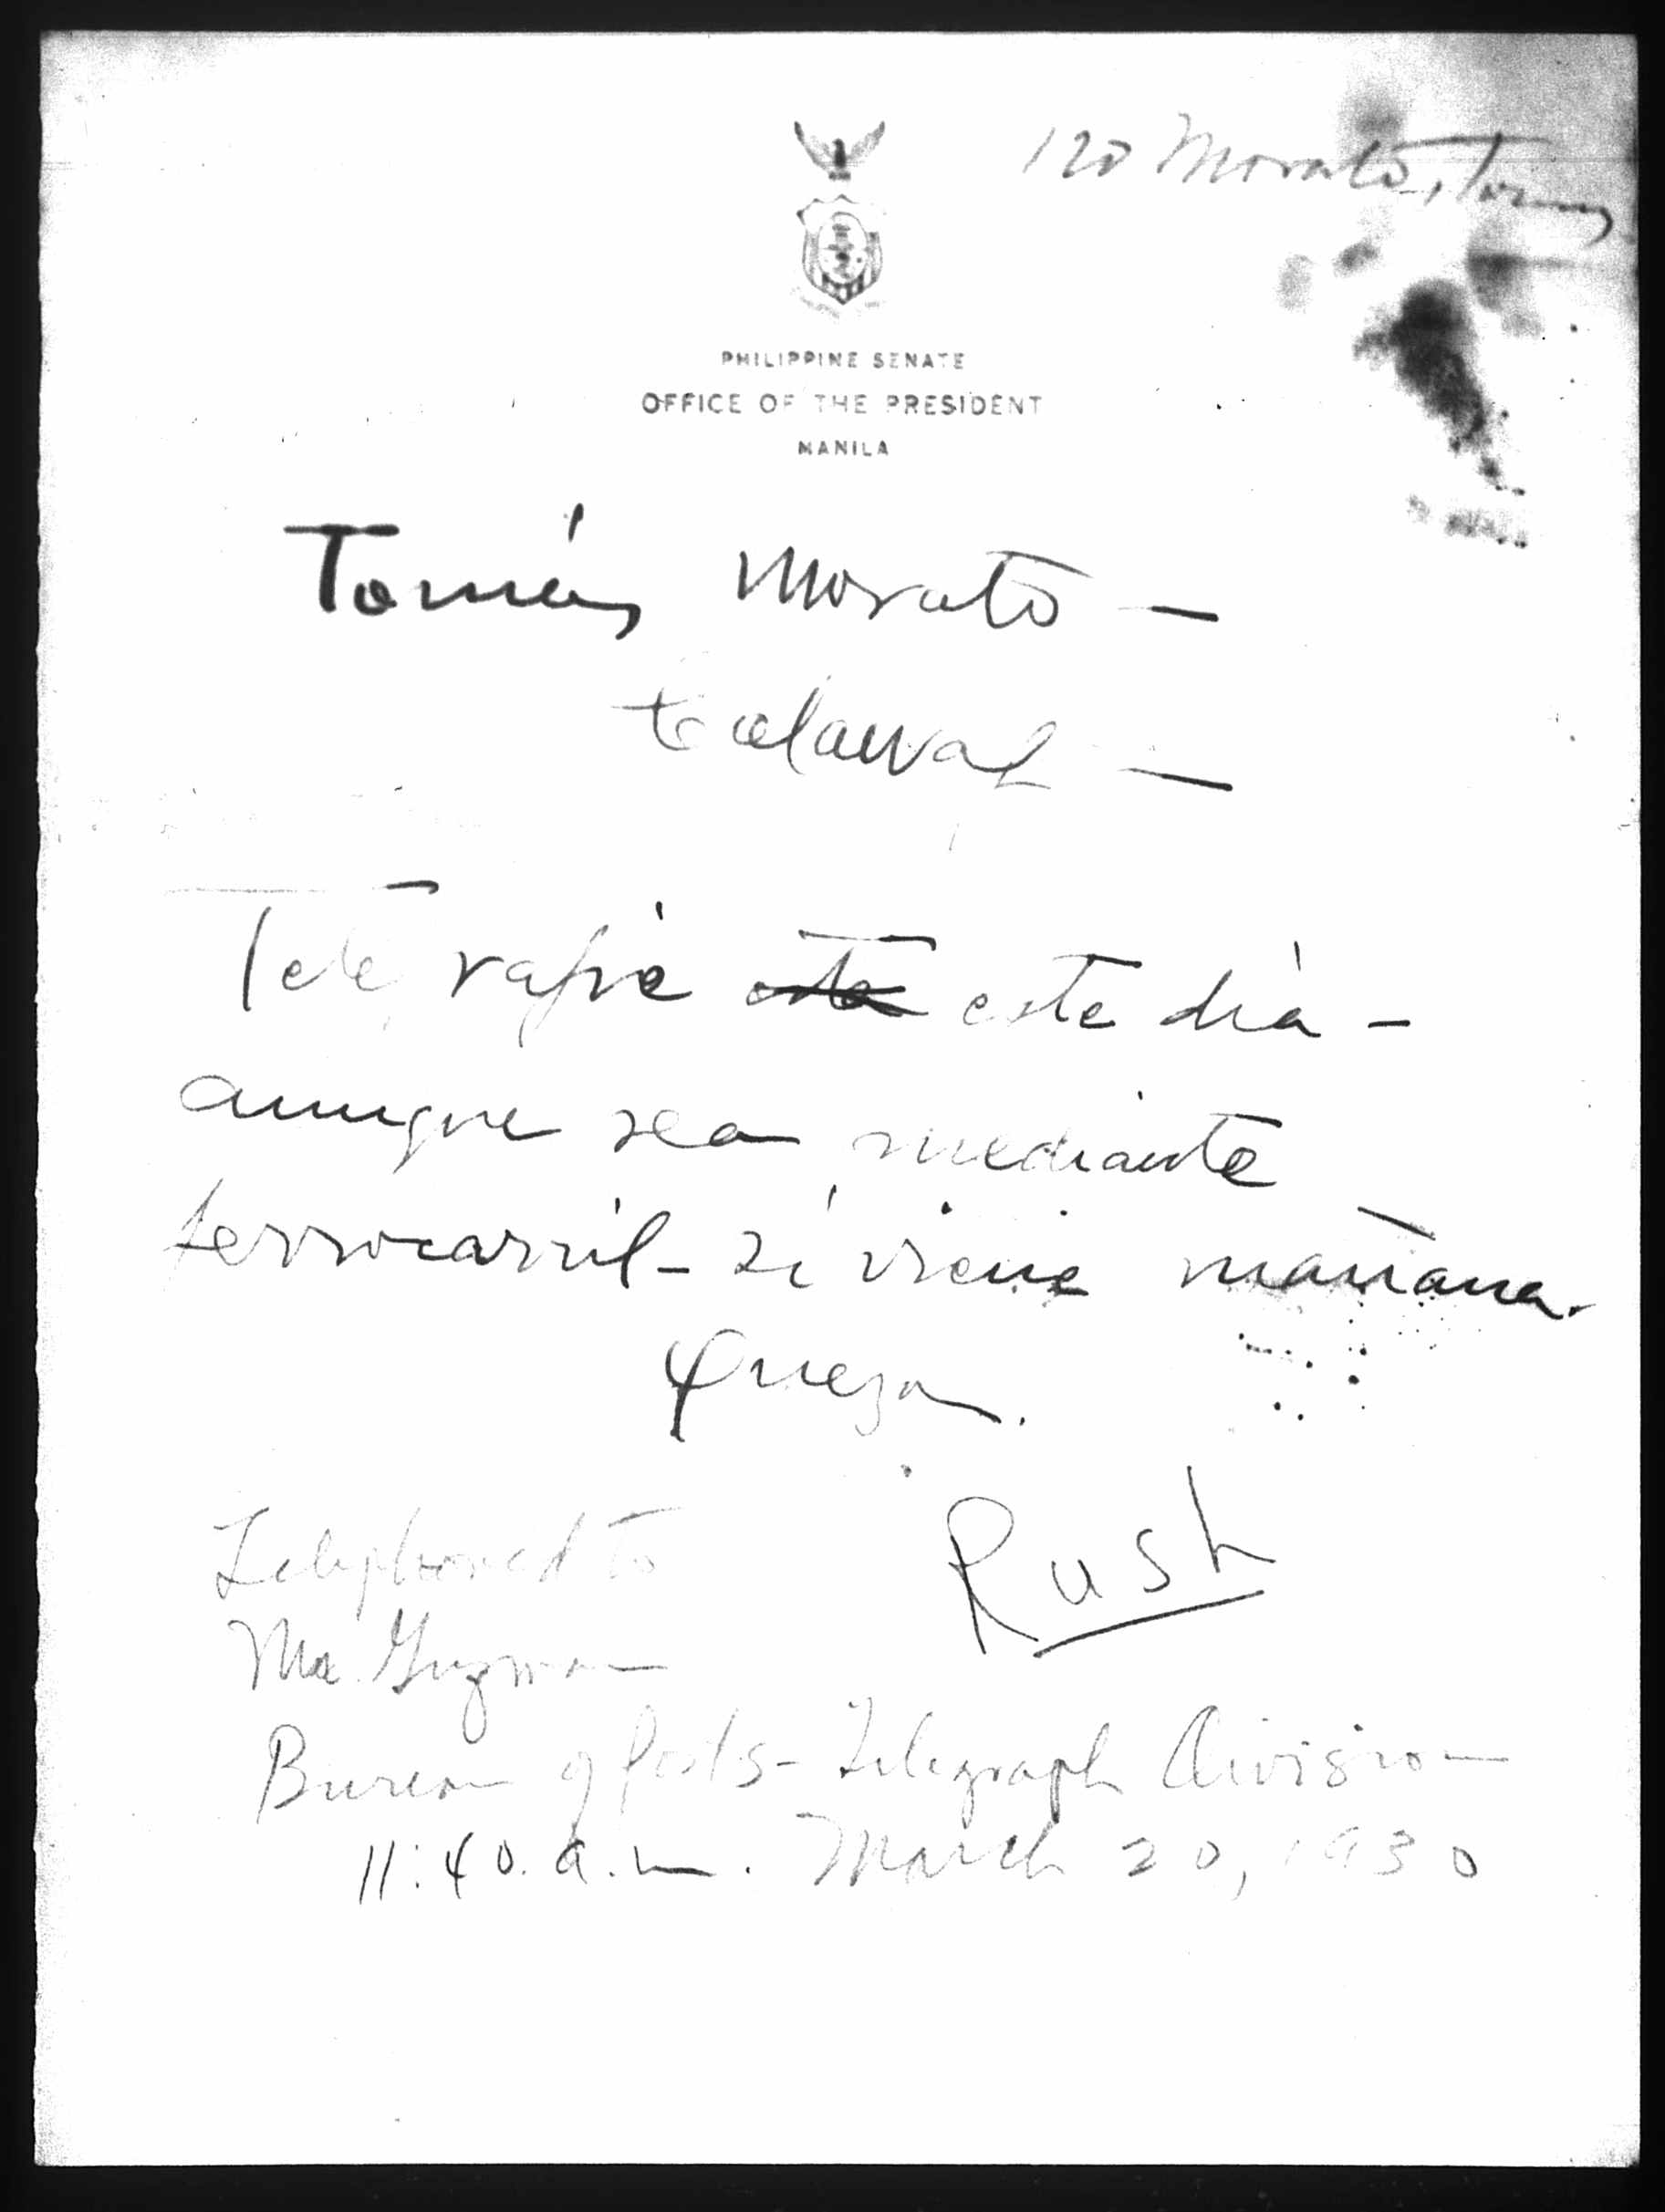 120 Morato, Tomas
PHILIPPINE SENATE
OFFICE OF THE PRESIDENT
MANILA
Tomás Morato —
Calauag —
Telegrafíe este día -
aunque sea mediante
ferrocarril - si viene mañana.
Quezon.
Rush
Telephoned to
Mr. Guzman
Bureau of Posts - Telegraph Division
11:40. a.m. March 20, 1930